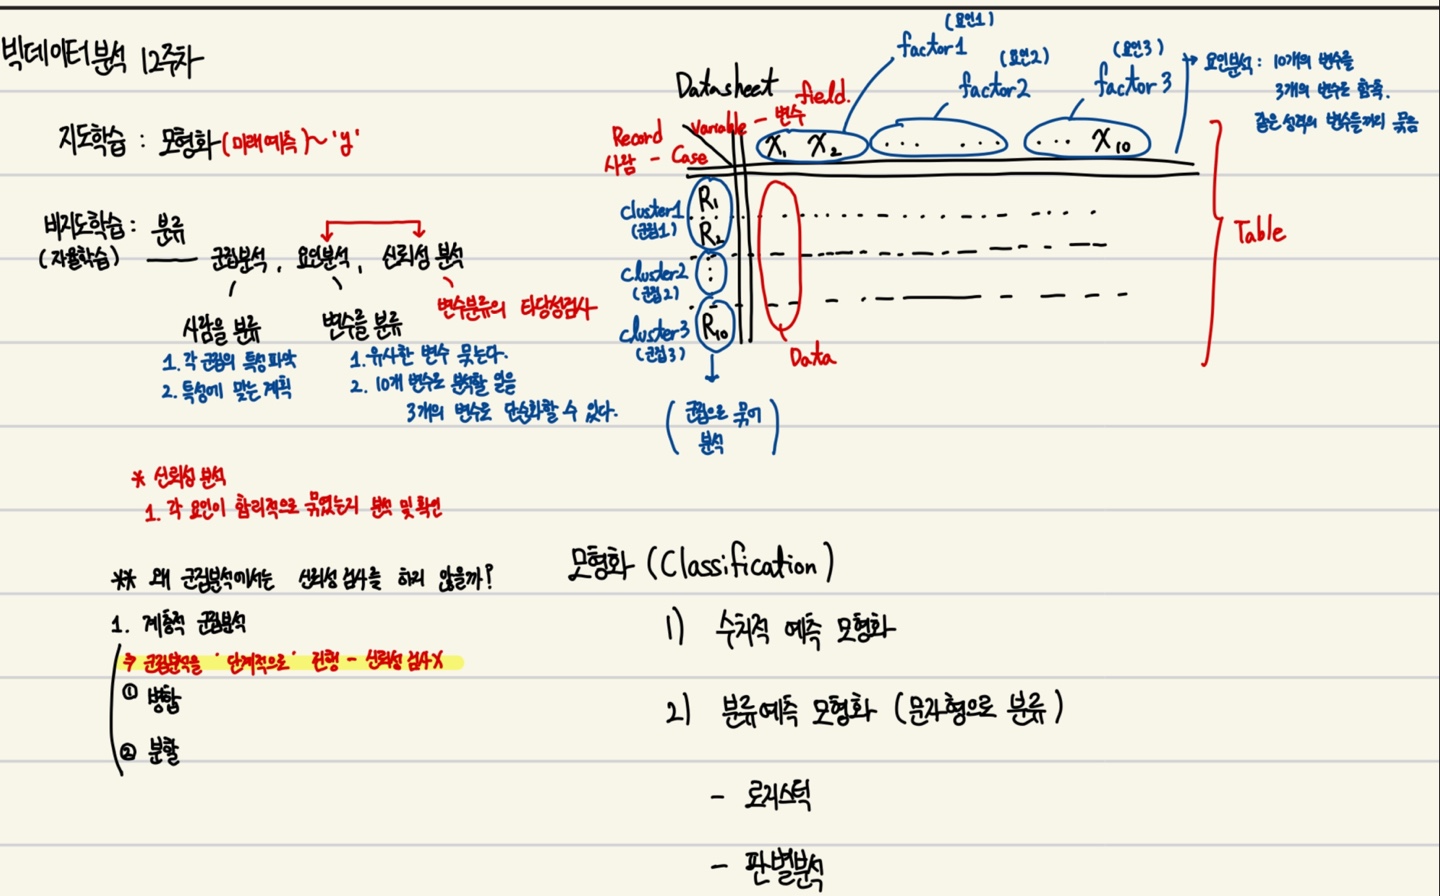 빅데이터분석 12주차
지도학습 : 모형화 (미래예측) ~ 'y'
비지도학습 : 분류
(자율학습)
군집분석, 요인분석, 신뢰성 분석
변수분류의 타당성검사
사람을 분류
1. 각 군집의 특성파악
2. 특성에 맞는 계획
변수를 분류
1. 유사한 변수 묶는다.
2. 10개 변수로 분석할 일을
3개의 변수로 단순화할 수 있다.
* 신뢰성 분석
1. 각 요인이 합리적으로 묶였는지 분석 및 확인
** 왜 군집분석에서는 신뢰성 검사를 하지 않을까?
1. 계층적 군집분석
군집분석을 '단계적으로' 진행 - 신뢰성 검사 X
① 병합
② 분할
Datasheet
(요인1)
factor1
(요인2)
factor2
(요인3)
factor3
→ 요인분석 : 10개의 변수를
3개의 변수로 함축.
같은 성격의 변수들끼리 묶음
field.
Variable - 변수
Record
사람 - Case
X1 X2 ... ... ... X10
cluster1
(군집1)
R1
R2
cluster2
(군집2)
⋮
cluster3
(군집3)
R10
Data
Table
(군집으로 묶어
분석)
모형화 (Classification)
1) 수치적 예측 모형화
2) 분류예측 모형화 (문자형으로 분류)
- 로지스틱
- 판별분석